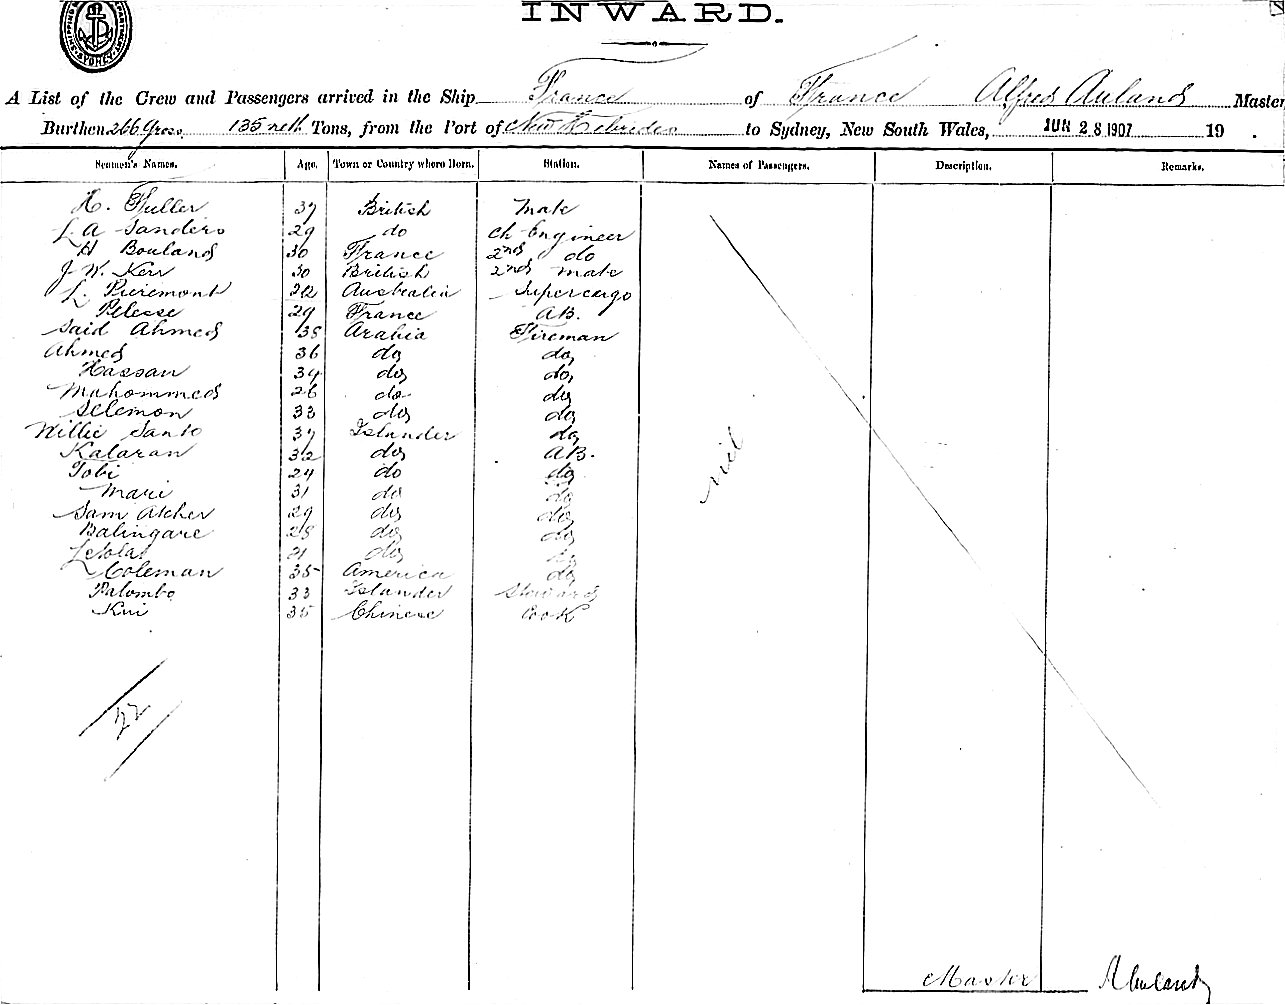 INWARD.
SYDNEY
A List of the Crew and Passengers arrived in the Ship France of France Alfred Auland Master
Burthen 266 Gross 135 nett Tons, from the Port of New Hebrides to Sydney, New South Wales, JUN 28 1907 19 .
Seamen's Names. Age. Town or Country where Born. Station. Names of Passengers. Description. Remarks.
H. Fuller 37 British Mate
L. A Sanders 29 do Ch Engineer
H Bouland 30 France 2nd do
J. W. Kerr 30 British 2nd Mate
L. Pieremont 22 Australia Supercargo
Pelesse 29 France A.B.
Said Ahmed 38 Arabia Fireman
Ahmed 36 do do
Hassan 34 do do
Mahommed 26 do do
Selemon 33 do do
Willie Santo 37 Islander do
Kalaran 32 do A.B.
Tobi 24 do do
Mari 31 do do
Sam Atcher 29 do do
Balingare 28 do do
21 do
Coleman 35 America do
Palombo 33 Islander Steward
Kui 35 Chinese Cook
nil
22
Master A Auland